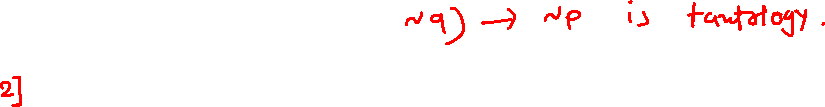 ~q) → ~p is tautology.
2]